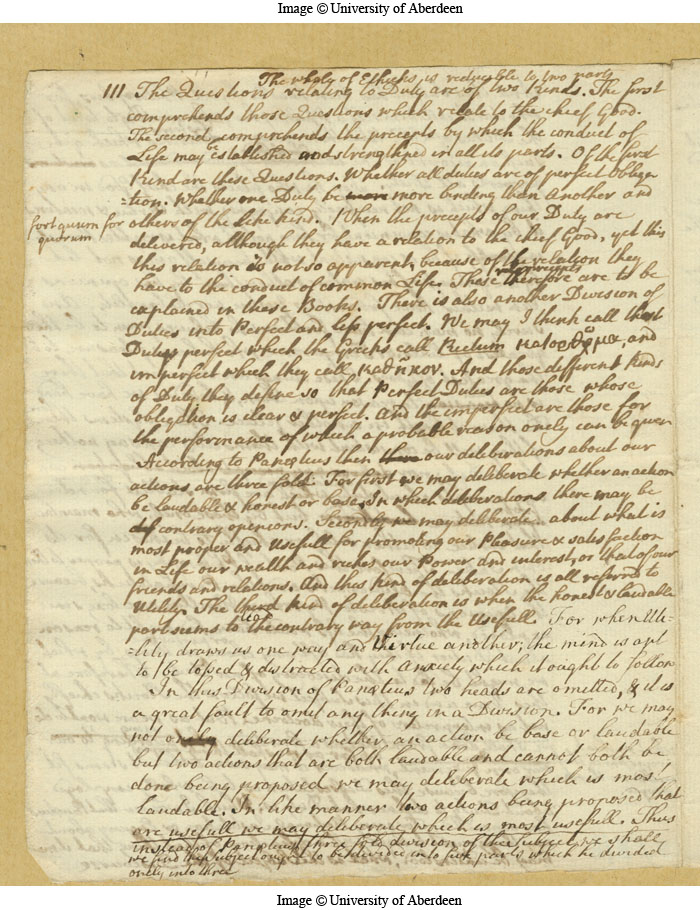 Image © University of Aberdeen
The whole of Ethicks is reducible to two parts
III The Questions relating to Duty are of two Kinds. The first
comprehends those Questions which relate to the chief Good.
The second comprehends the precepts by which the conduct of
Life may be established and strengthned in all its parts. Of the first
Kind are these Questions. Whether all duties are of perfect Obliga
=tion. Whether one Duty be more more binding than Another and
fort quum for
quorum
others of the like kind. When the precepts of our Duty are
delivered, although they have a relation to the chief Good, yet this
this relation is not so apparent, because of the relation they
have to the conduct of common Life. These precepts therefore are to be
explained in these Books. There is also another Division of
Duties into Perfect and less perfect. We may I think call that
Duty perfect which the Greeks call Rectum κατορθωμα, and
imperfect which they call καθηκον. And those different Kinds
of Duty they define so that Perfect Duties are those whose
obligation is clear & perfect. And the imperfect are those for
the performance of which a probable reason onely can be given
According to Panætius then our deliberations about our
actions are three fold. For first we may deliberate whether an action
be laudable & honest or base, In which deliberations there may be
contrary openions. Secondly we may deliberate about what is
most proper and Usefull for promoting our Pleasure & satisfaction
in Life our wealth and riches our Power and interest, or that of our
friends and relations. And this kind of deliberation is all referred to
Utility. The third Kind of deliberation is when the honest & laudable
part seems to lead the contrary way from the Usefull. For when Uti-
=lity draws us one way and Virtue another; the mind is apt
to be tossed & distracted with Anxiety which it ought to follow
In this Division of Panætius two heads are omitted, & it is
a great fault to omit any thing in a Division. For we may
not only deliberate whether an action be base or laudable
but two actions that are both laudable and cannot both be
done being proposed we may deliberate which is most
laudable. In like manner two actions being proposed that
are usefull we may deliberate which is most usefull. Thus
instead of Panætius's three fold division of the Subject we shall
we find this subject ought to be divided into five parts which he divided
onely into three
Image © University of Aberdeen